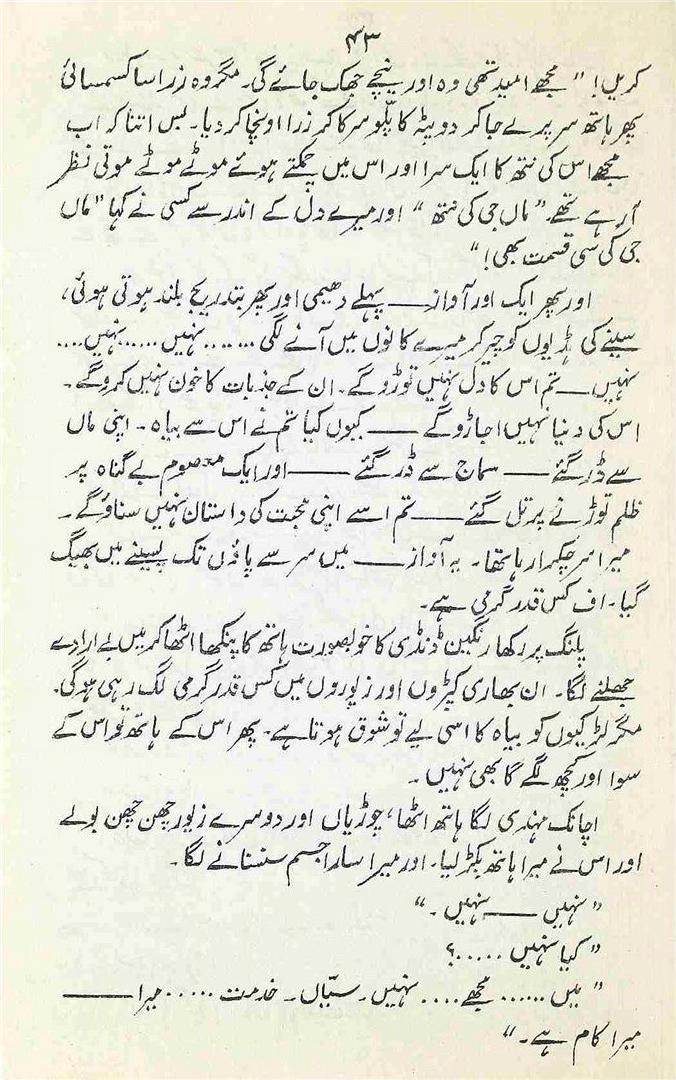 ۴۳
کریں!" مجھے امید تھی وہ اور نیچے جھک جائے گی۔ مگر وہ زرا سا کسمسائی
پھر ہاتھ سر پر لے جا کر دوپٹہ کا پلّو سرکا کر زرا اونچا کر دیا۔ بس اتنا کہ اب
مجھے اس کی نتھ کا ایک سرا اور اس میں چمکتے ہوئے موٹے موٹے موتی نظر
آ رہے تھے۔ "ماں جی کی نتھ" اور میرے دل کے اندر سے کسی نے کہا "ماں
جی کی سی قسمت بھی!"
اور پھر ایک اور آواز—— پہلے دھیمی اور پھر بتدریج بلند ہوتی ہوئی،
سینے کی ہڈیوں کو چیر کر میرے کانوں میں آنے لگی ....... نہیں ..... نہیں....
نہیں—— تم اس کا دل نہیں توڑو گے۔ ان کے جذبات کا خون نہیں کرو گے۔
اس کی دنیا نہیں اجاڑو گے —— کیوں کیا تم نے اس سے بیاہ۔ اپنی ماں
سے ڈر گئے —— سماج سے ڈر گئے —— اور ایک معصوم بے گناہ پر
ظلم توڑنے پر تل گئے —— تم اسے اپنی محبت کی داستان نہیں سناؤ گے۔
میرا سر چکرا رہا تھا۔ یہ آواز—— میں سر سے پاؤں تک پسینے میں بھیگ
گیا۔ اف کس قدر گرمی ہے۔
پلنگ پر رکھا رنگین ڈنڈی کا خوبصورت ہاتھ کا پنکھا اٹھا کر میں بے ارادے
جھلنے لگا۔ ان بھاری کپڑوں اور زیوروں میں کس قدر گرمی لگ رہی ہو گی۔
مگر لڑکیوں کو بیاہ کا اسی لیے تو شوق ہوتا ہے۔ پھر اس کے ہاتھ تو اس کے
سوا اور کچھ لگے گا بھی نہیں۔
اچانک مہندی لگا ہاتھ اٹھا، چوڑیاں اور دوسرے زیور چھن چھن بولے
اور اس نے میرا ہاتھ پکڑ لیا۔ اور میرا سارا جسم سنسنانے لگا۔
"نہیں —— نہیں۔"
"کیا نہیں .....؟
"میں ...... مجھے .... نہیں۔ سیّاں۔ خدمت ..... میرا ——
میرا کام ہے۔"